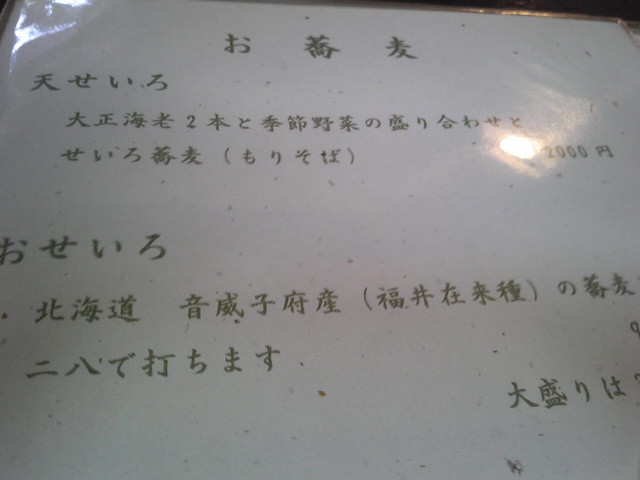 お蕎麦
天せいろ
大正海老2本と季節野菜の盛り合わせと
せいろ蕎麦(もりそば)
2000円
おせいろ
北海道 音威子府産(福井在来種)の蕎麦
二八で打ちます
大盛りは